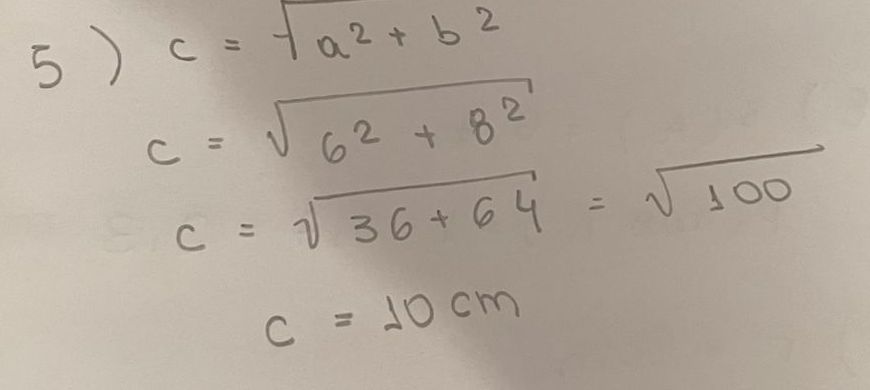 5) c = √a² + b²
c = √6² + 8²
c = √36 + 64 = √100
c = 10 cm